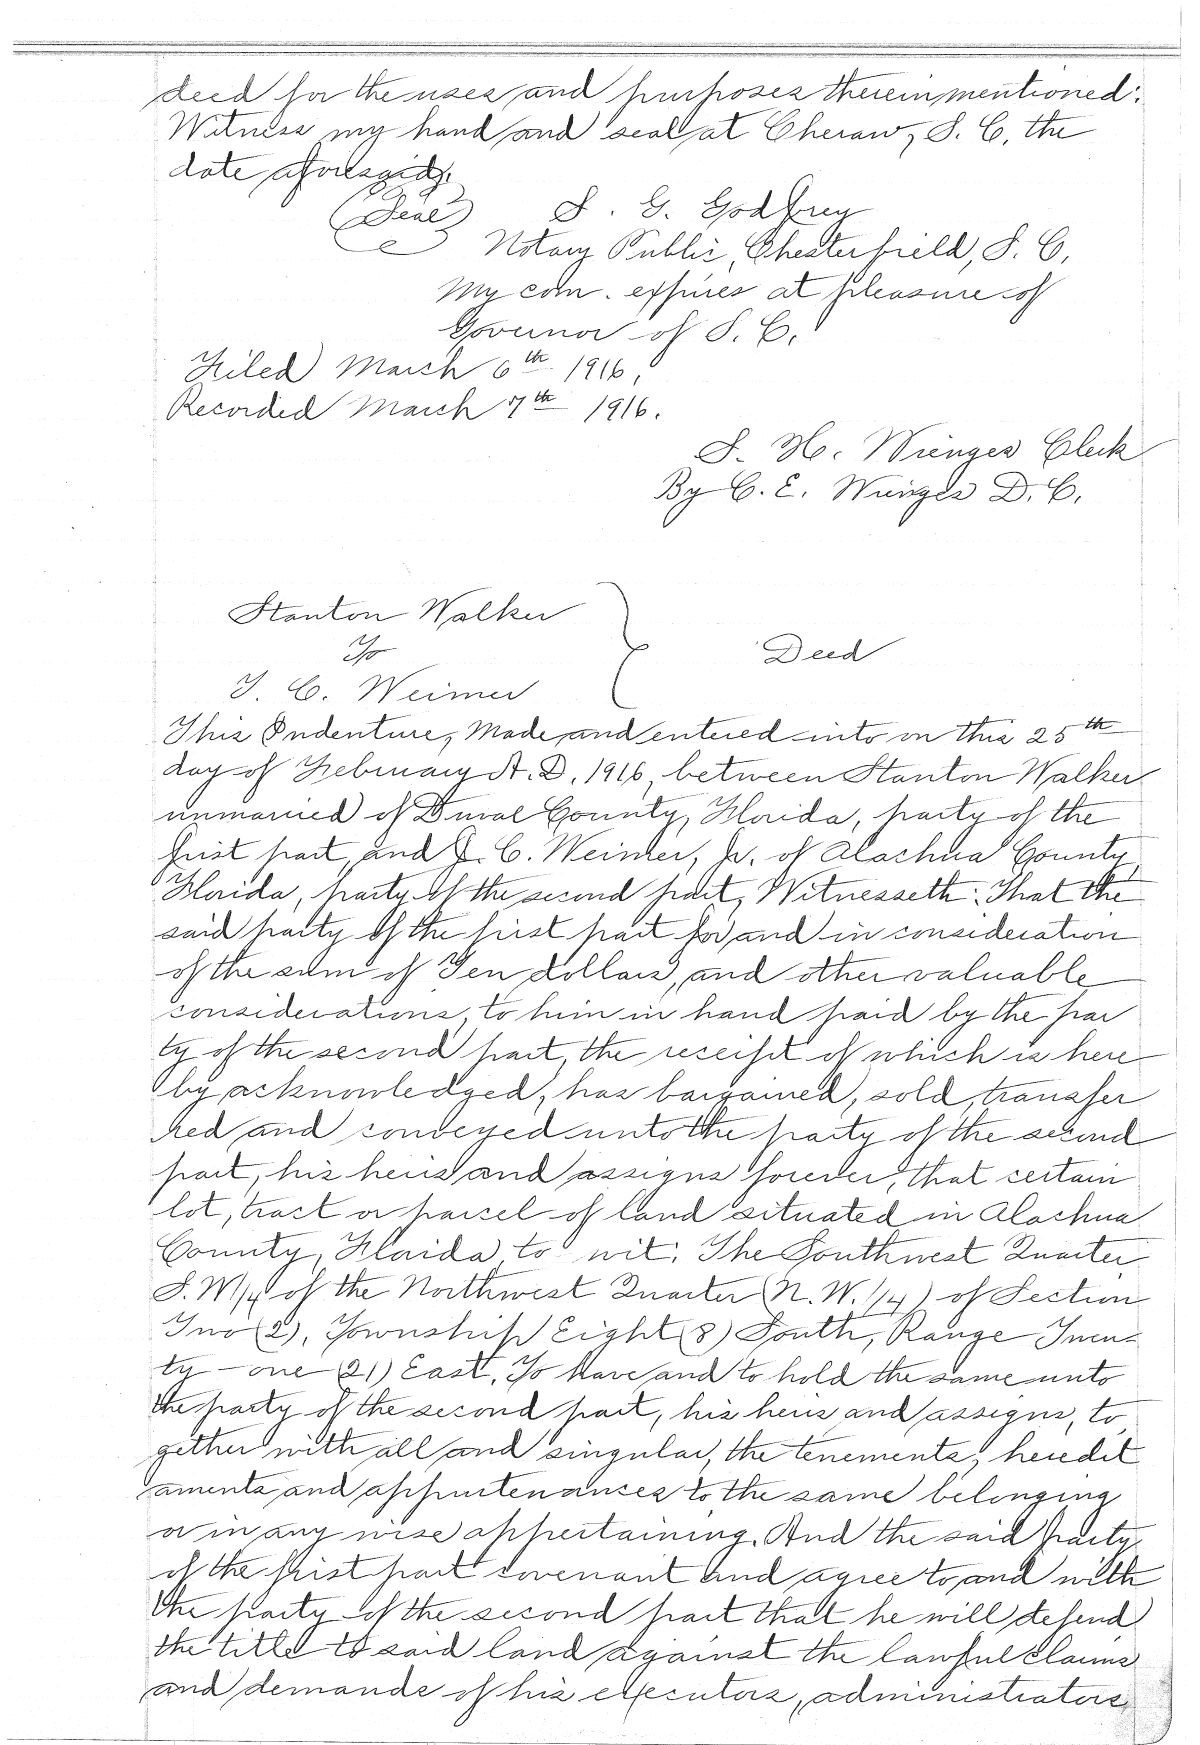 deed for the uses and purposes therein mentioned.
Witness my hand and seal at Cheraw, S. C. the
date aforesaid.
(Seal) S. G. Godfrey
Notary Public, Chesterfield, S. C.
My com. expires at pleasure of
Governor of S. C.
Filed March 6th 1916,
Recorded March 7th 1916.
S. H. Wienges Clerk
By C. E. Wienges D. C.
Stanton Walker
To
J. C. Weimer
Deed
This Indenture, Made and entered into on this 25th
day of February A. D. 1916, between Stanton Walker
unmarried of Duval County, Florida, party of the
first part, and J. C. Weimer, Jr. of Alachua County
Florida, party of the second part, Witnesseth: That the
said party of the first part for and in consideration
of the sum of Ten dollars, and other valuable
considerations, to him in hand paid by the par
ty of the second part, the receipt of which is here
by acknowledged, has bargained, sold, transfer
red and conveyed unto the party of the second
part, his heirs and assigns forever, that certain
lot, tract or parcel of land situated in Alachua
County, Florida, to wit: The Southwest Quarter
S. W/4 of the Northwest Quarter (N. W. 1/4) of Section
Two (2), Township Eight (8) South, Range Twen-
ty-one (21) East. To have and to hold the same unto
the party of the second part, his heirs and assigns, to
gether with all and singular, the tenements, heredit
aments and appurtenances to the same belonging
or in any wise appertaining. And the said party
of the first part covenant and agree to and with
the party of the second part that he will defend
the title to said land against the lawful claims
and demands of his executors, administrators,